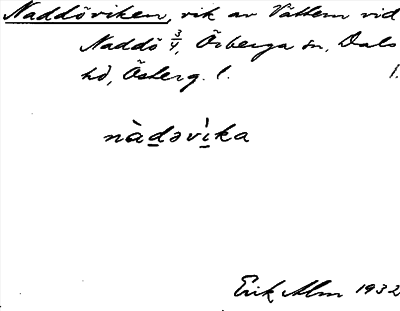 Naddöviken, vik av Vättern vid
Naddö 3/4, Örberga sn, Dals
hd, Österg. l. 1.
nàdəvìka
Erik Alm 1932